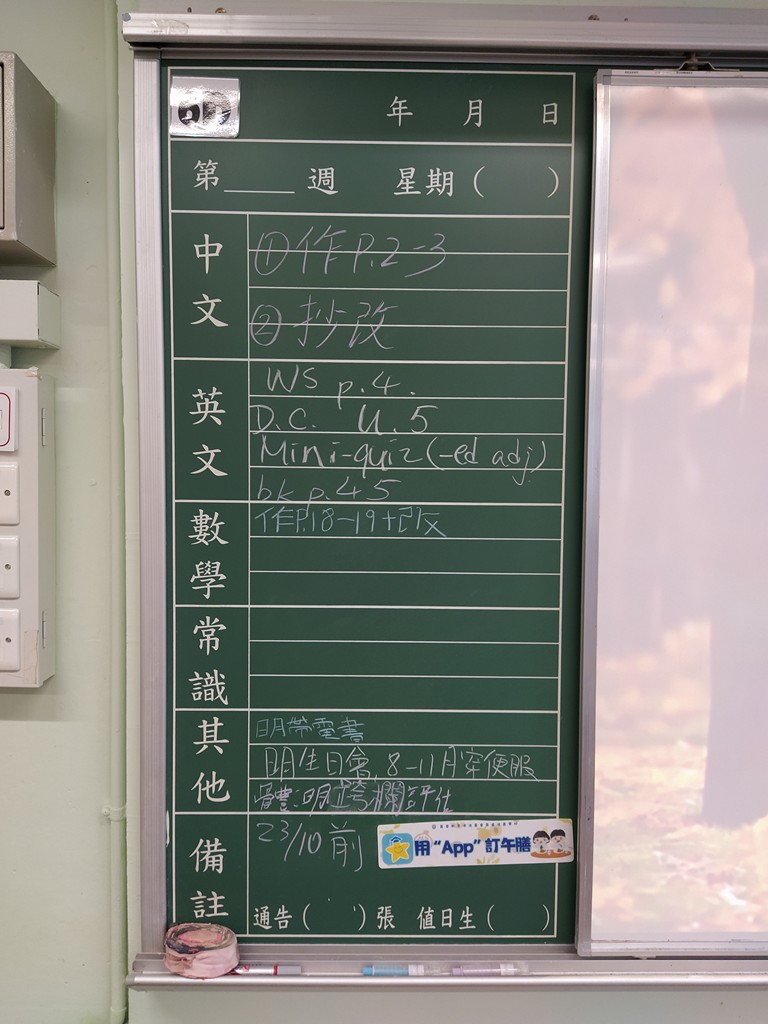 年 月 日
第____週 星期( )
中文
①作P.2-3
②抄改
英文
WS p.4.
D.C. U.5
Mini-quiz(-ed adj)
bk p.45
數學
作P.18-19+改
常識
其他
明帶電書
明生日會,8-11月穿便服
體:明跨欄評估
備註
23/10前
用“App”訂午膳
通告( )張 值日生( )